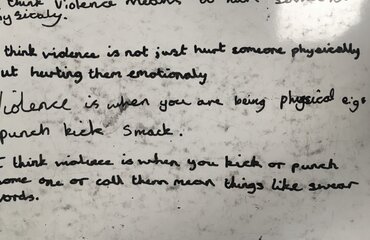 think Violence means to
ysicaly.
think violence is not just hurt someone physically
ut hurting them emotionaly
Violence is when you are being physical e.g.
punch kick Smack.
I think violence is when you kick or punch
ome one or call them mean things like swear
ords.